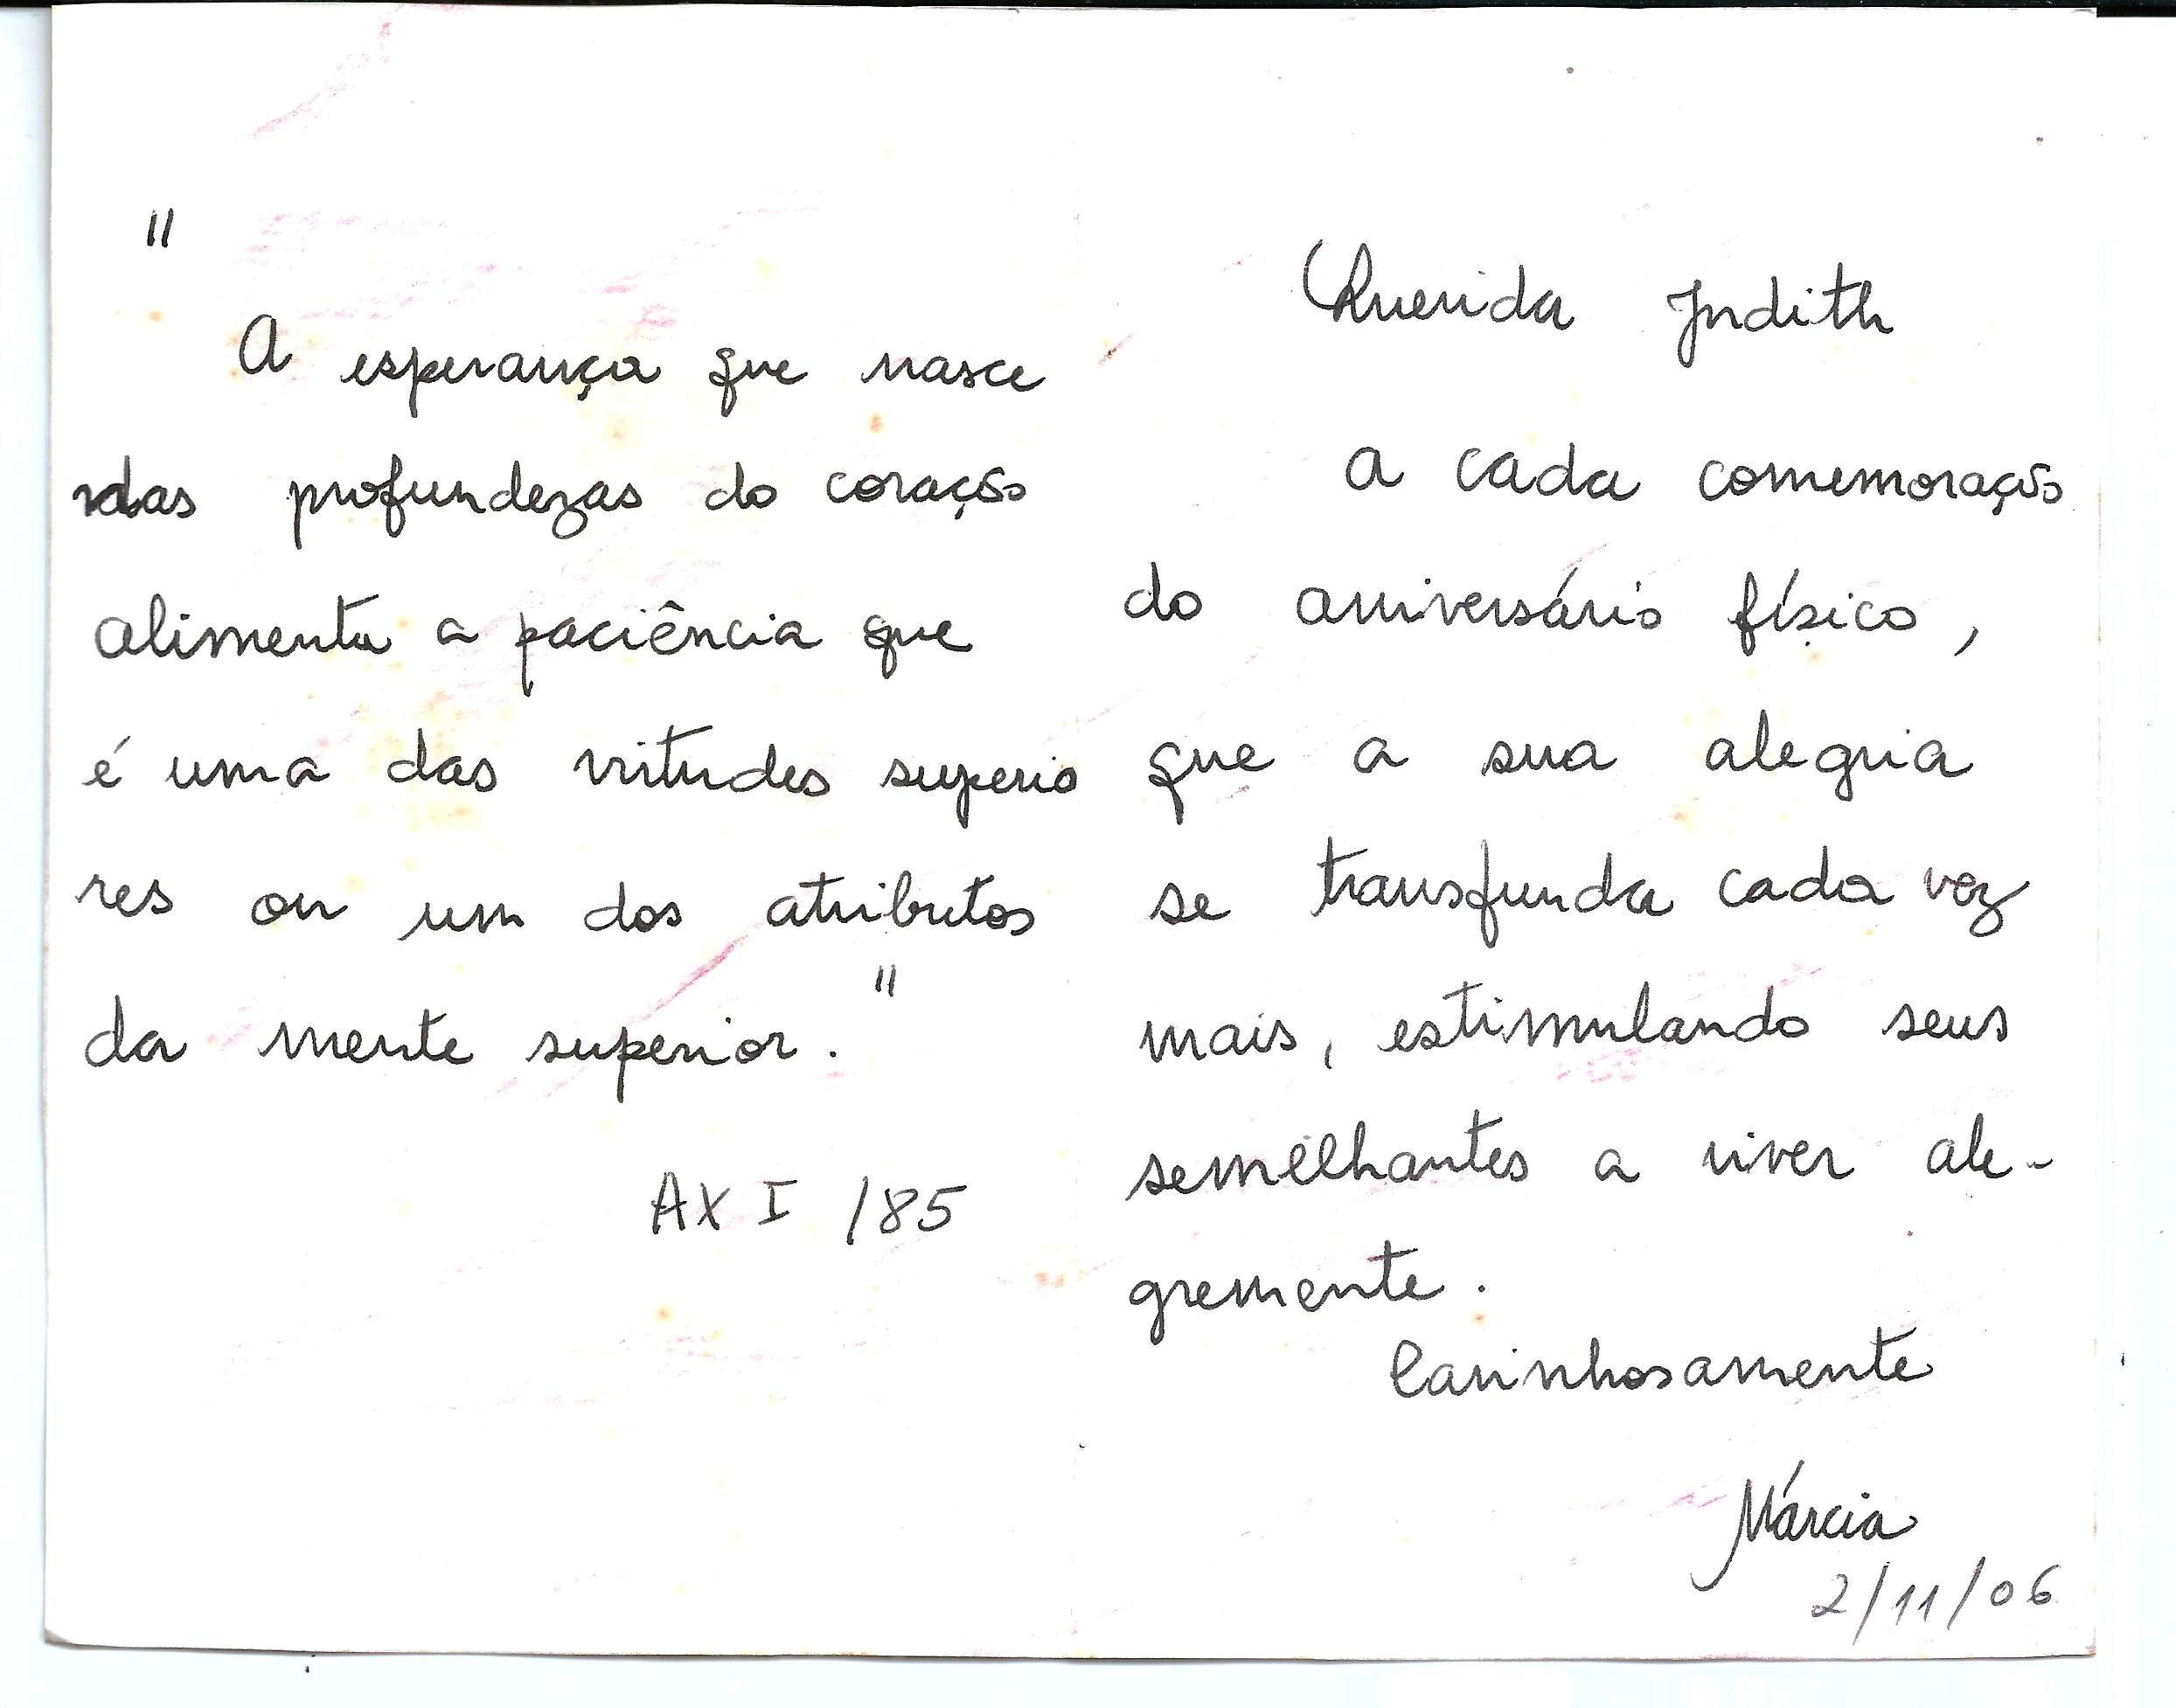 "
A esperança que nasce
das profundezas do coração
alimenta a paciência que
é uma das virtudes superio
res ou um dos atributos
da mente superior."
AX I /85
Querida Judith
A cada comemoração
do aniversário físico,
que a sua alegria
se transfunda cada vez
mais, estimulando seus
semelhantes a viver ale-
gremente.
Carinhosamente
Márcia
2/11/06